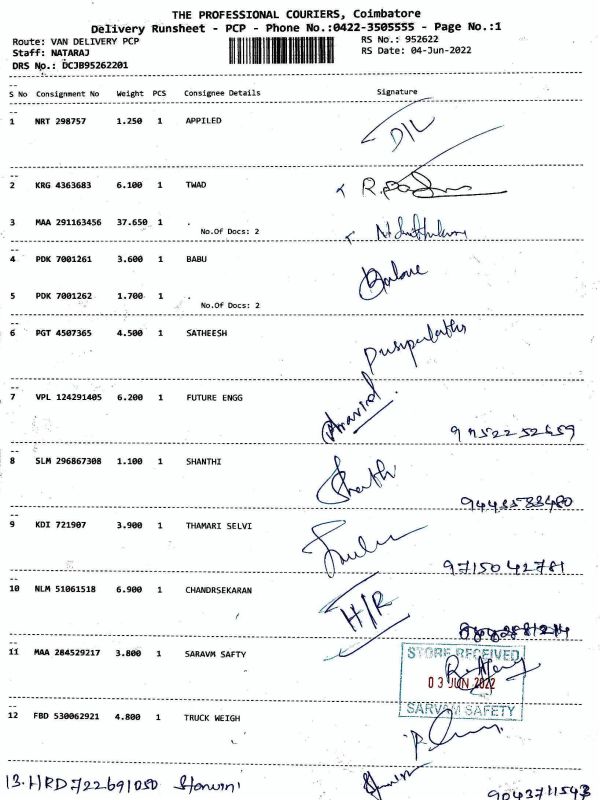 THE PROFESSIONAL COURIERS, Coimbatore
Delivery Runsheet - PCP - Phone No.:0422-3505555 - Page No.:1
Route: VAN DELIVERY PCP RS No.: 952622
Staff: NATARAJ RS Date: 04-Jun-2022
DRS No.: DCJB95262201
S No Consignment No Weight PCS Consignee Details Signature
1 NRT 298757 1.250 1 APPILED D/L
2 KRG 4363683 6.100 1 TWAD
3 MAA 291163456 37.650 1 .
No.Of Docs: 2
4 PDK 7001261 3.600 1 BABU
5 PDK 7001262 1.700 1 .
No.Of Docs: 2
6 PGT 4507365 4.500 1 SATHEESH
7 VPL 124291405 6.200 1 FUTURE ENGG Aravind.
8 SLM 296867308 1.100 1 SHANTHI
9 KDI 721907 3.900 1 THAMARI SELVI
9715042781
10 NLM 51061518 6.900 1 CHANDRSEKARAN H/R
11 MAA 284529217 3.800 1 SARAVM SAFTY
STORE RECEIVED
03 JUN 2022
SARVAM SAFETY
12 FBD 530062921 4.800 1 TRUCK WEIGH
13. HRD722691050
9043711543